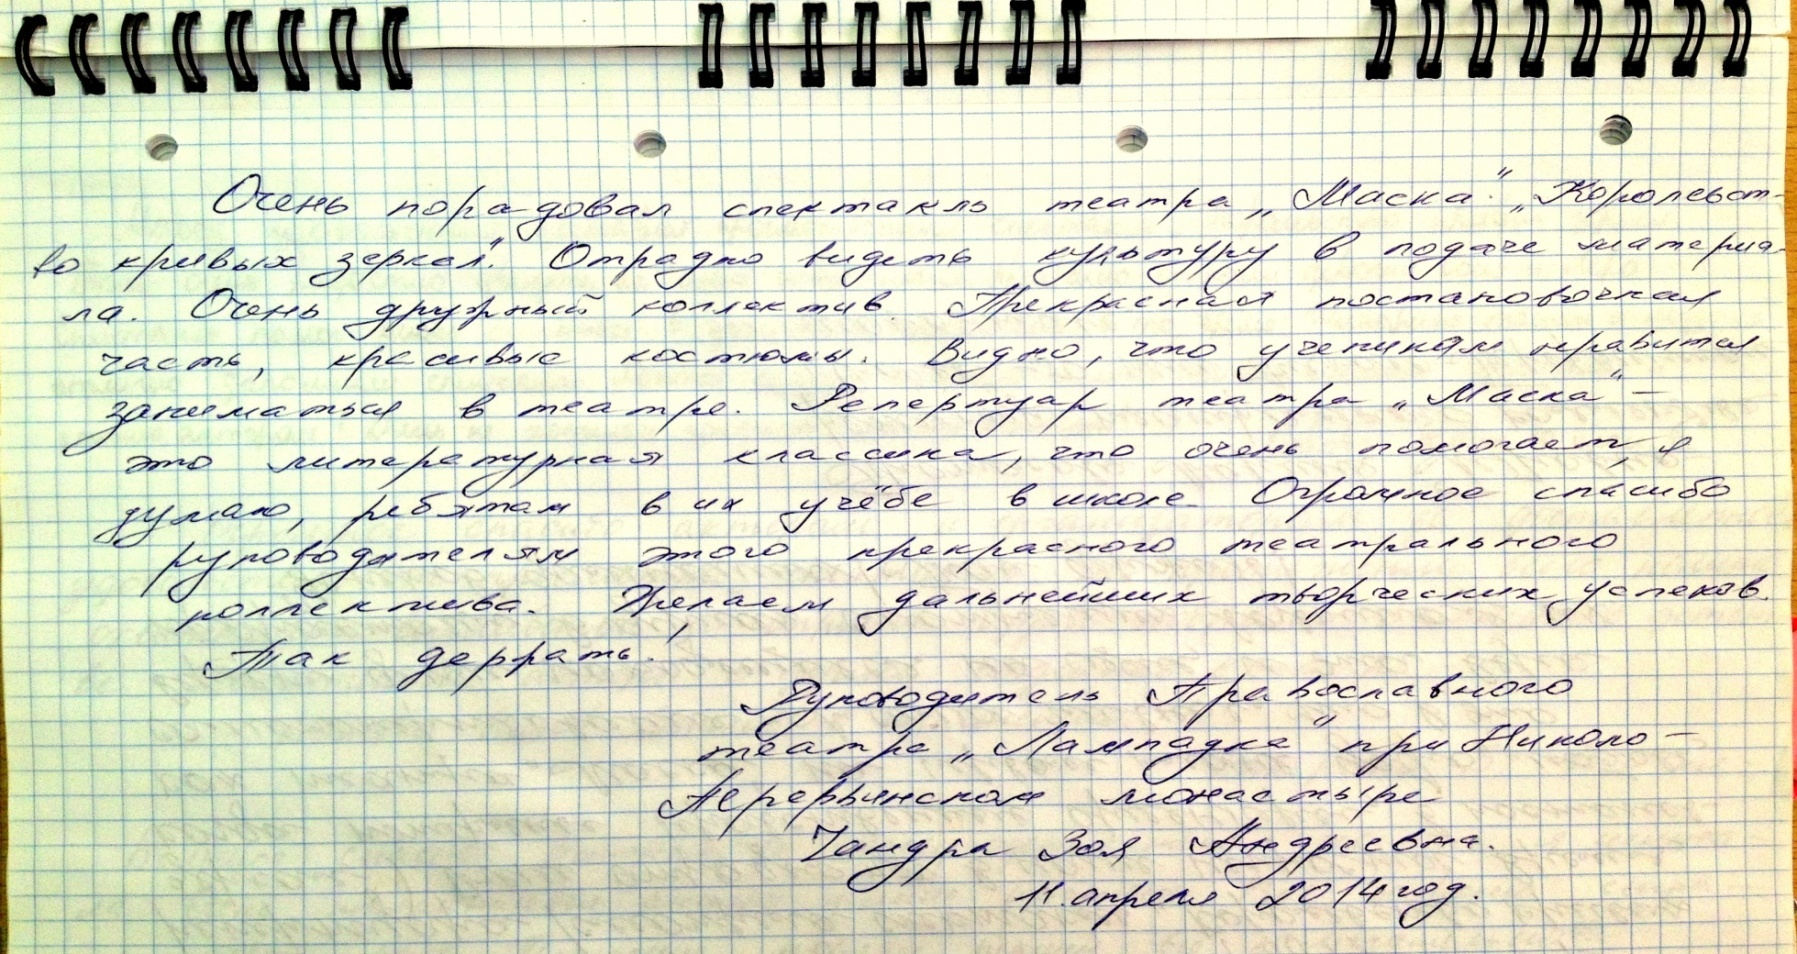 Очень порадовал спектакль театра „Маска". „Королевст-
во кривых зеркал". Отрадно видеть культуру в подаче материа-
ла. Очень дружный коллектив. Прекрасная постановочная
часть, красивые костюмы. Видно, что ученикам нравится
заниматься в театре. Репертуар театра „Маска" –
это литературная классика, что очень помогает, я
думаю, ребятам в их учёбе в школе. Огромное спасибо
руководителям этого прекрасного театрального
коллектива. Желаем дальнейших творческих успехов.
Так держать!
Руководитель Православного
театра „Лампадка" при Николо-
Перервинском монастыре
Чандра Зоя Андреевна.
11. апреля 2014 год.